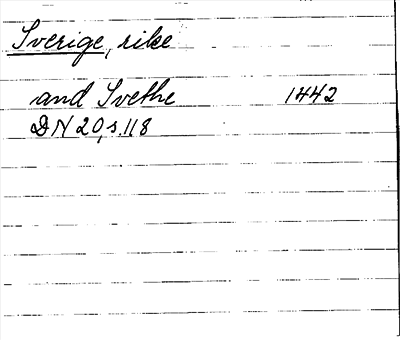 Sverige, rike
and Svethe 1442
DN 20, s. 118